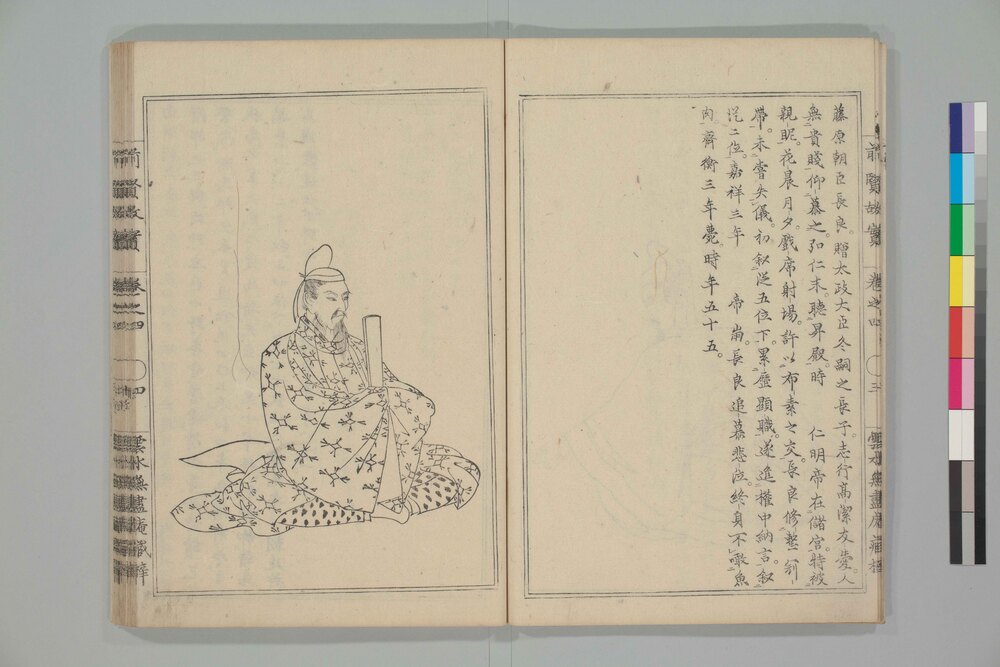 藤原朝臣長良。贈太政大臣冬嗣之長子。志行高潔友愛。人
無貴賤仰慕之。弘仁末。聽昇殿。時　仁明帝在儲宮。特被
親昵。花晨月夕。戲席射場。許以布素之交。長良修整冠
帶。未嘗失儀。初叙從五位下。累歷顯職。遂進權中納言。叙
從二位。嘉祥三年　帝崩。長良追慕悲泣。終身不噉魚
肉。齊衡三年薨。時年五十五。
前賢故實　卷之四　三　雲水無盡庵藏梓
前賢故實　卷之四　四　雲水無盡庵藏梓